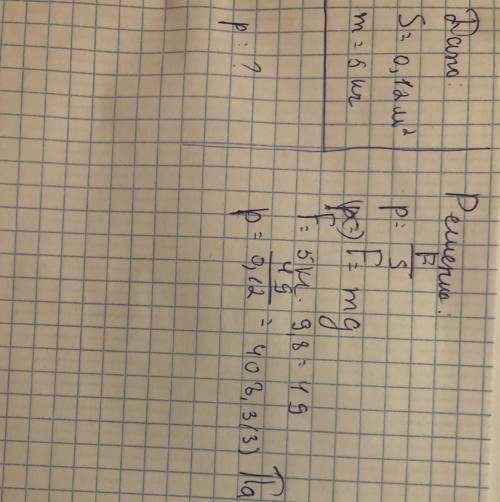 Дано:
S = 0,12 м²
m = 5 кг
p = ?
Решение:
p = F/S
F = mg
F = 5 кг · 9,8 = 49
p = 49/0,12 = 408,3(3) Па